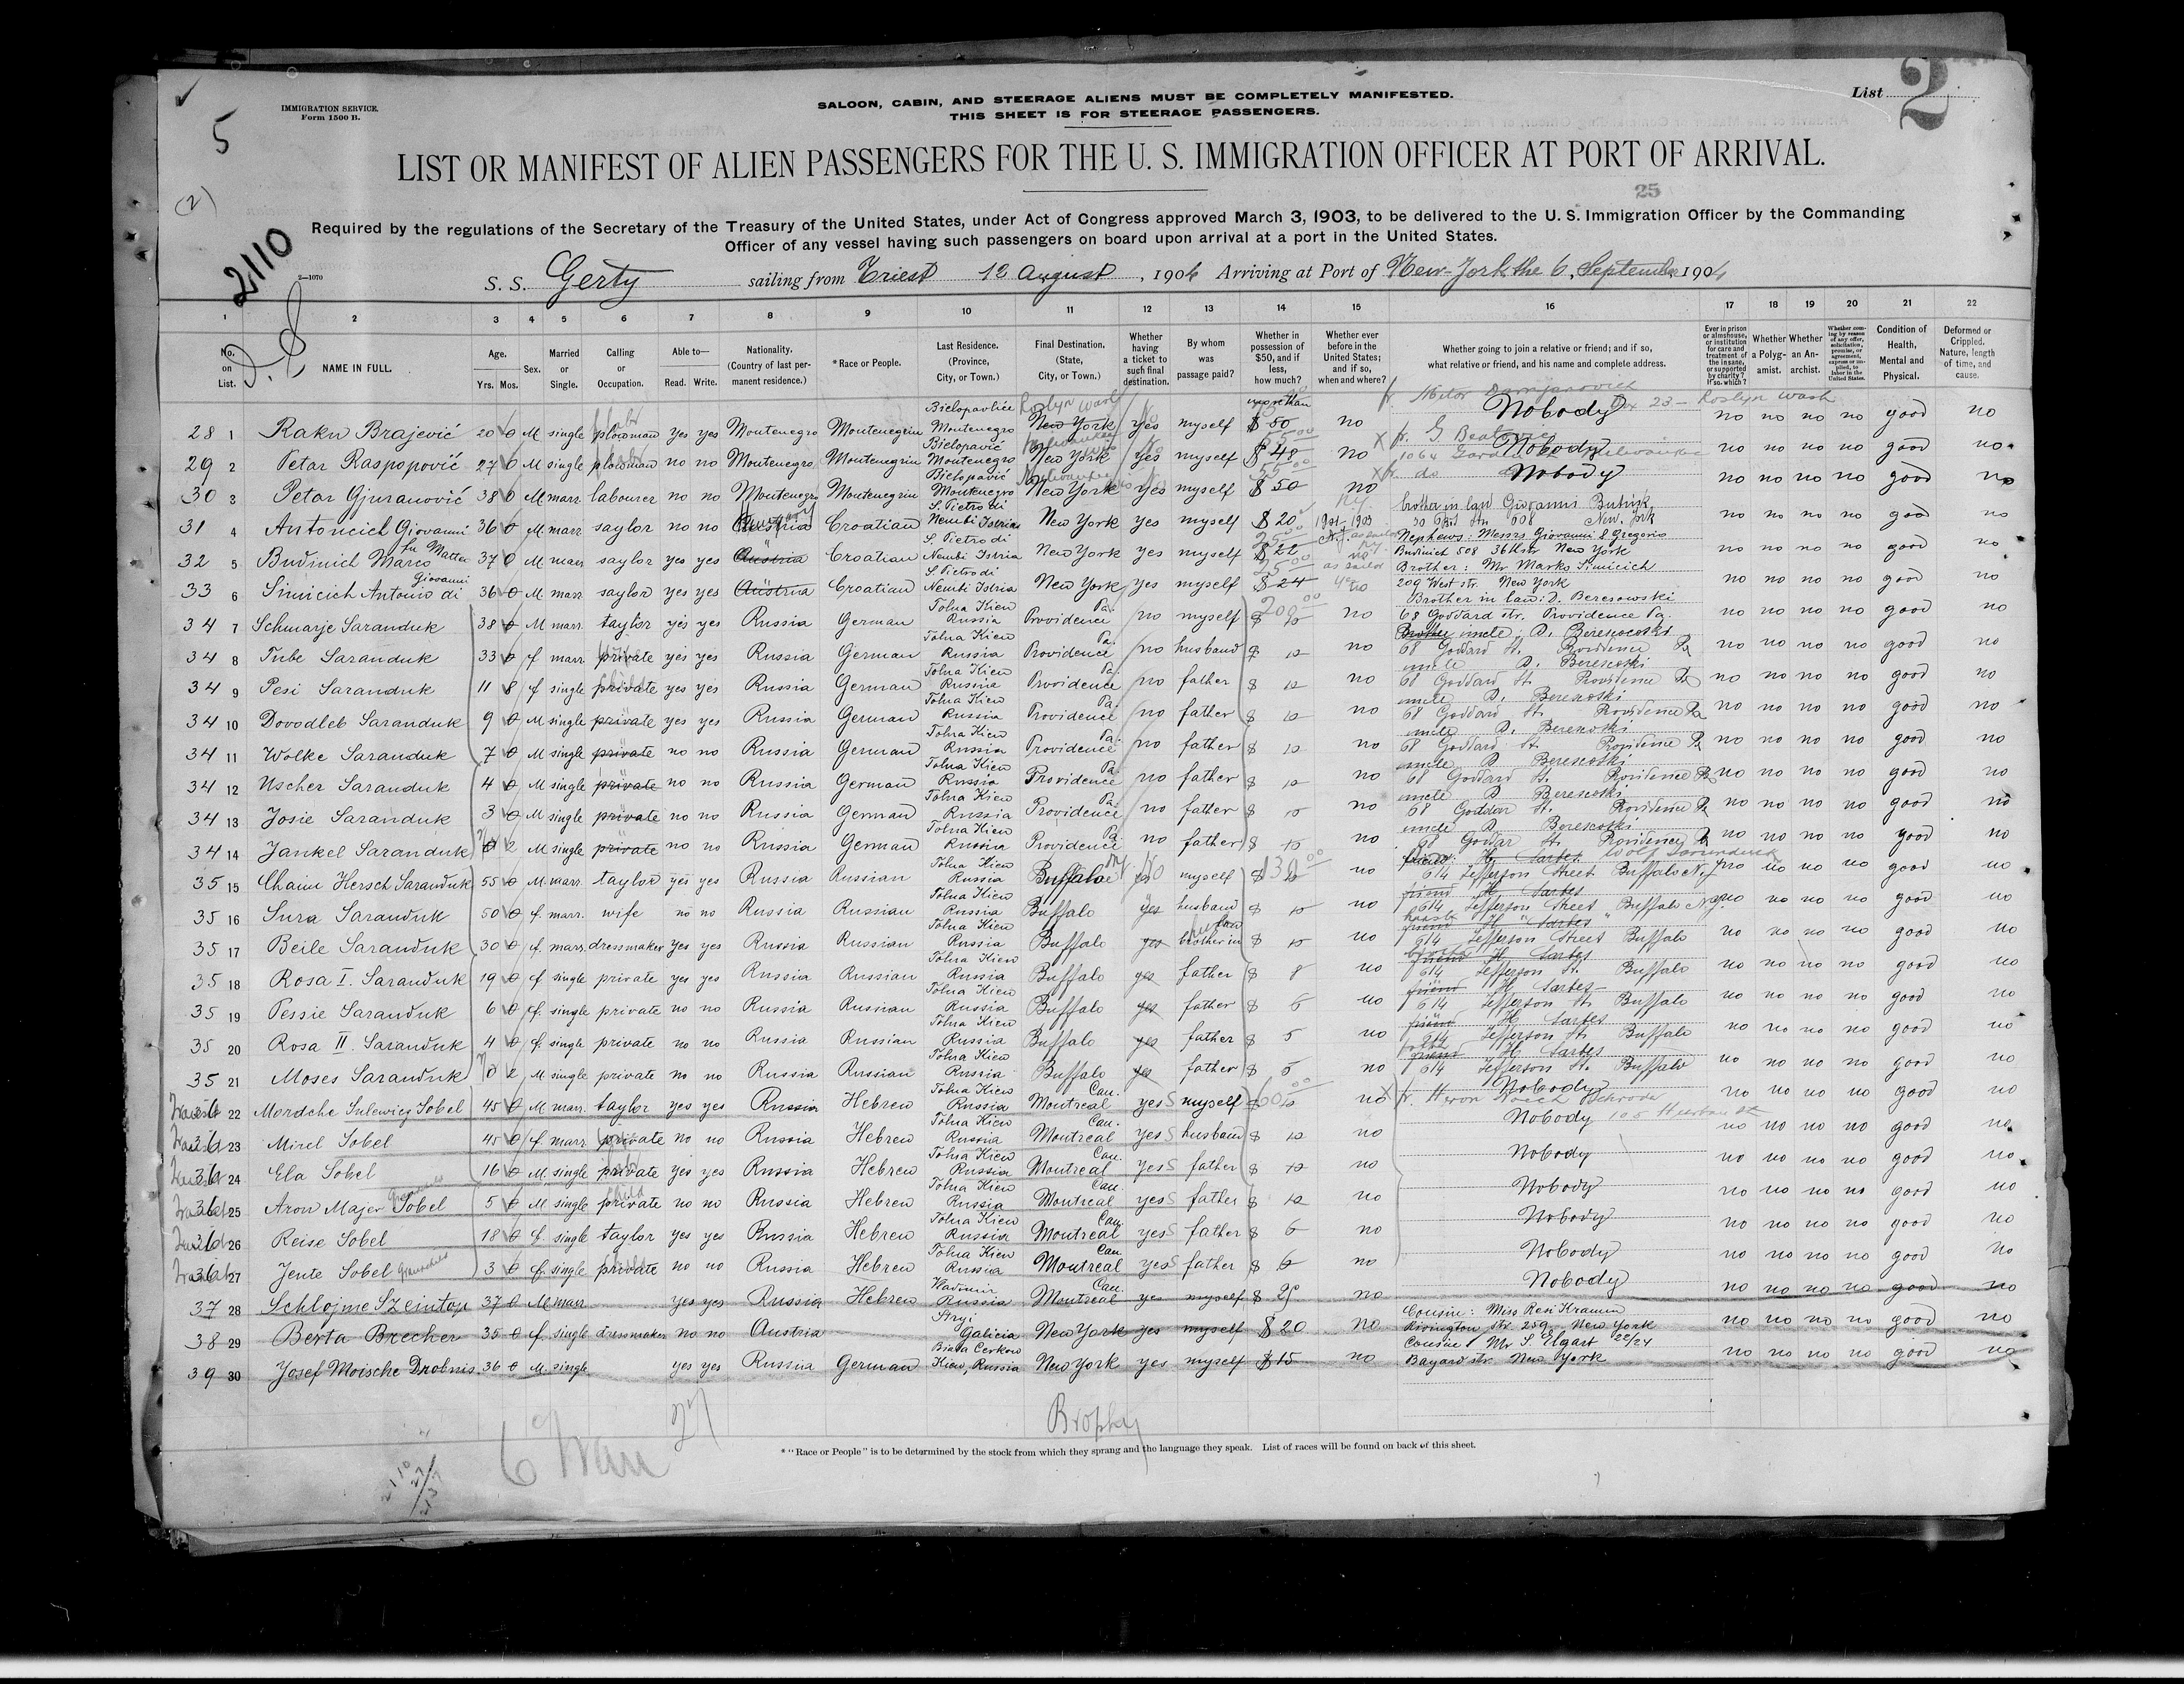 5
(2)
2110
IMMIGRATION SERVICE.
Form 1500 B.
SALOON, CABIN, AND STEERAGE ALIENS MUST BE COMPLETELY MANIFESTED.
THIS SHEET IS FOR STEERAGE PASSENGERS.
List 2
LIST OR MANIFEST OF ALIEN PASSENGERS FOR THE U. S. IMMIGRATION OFFICER AT PORT OF ARRIVAL.
25
Required by the regulations of the Secretary of the Treasury of the United States, under Act of Congress approved March 3, 1903, to be delivered to the U. S. Immigration Officer by the Commanding
Officer of any vessel having such passengers on board upon arrival at a port in the United States.
2—1070
S. S. Gerty sailing from Triest 12 August, 1904 Arriving at Port of New-York the 6, September 1904
1 2 3 4 5 6 7 8 9 10 11 12 13 14 15 16 17 18 19 20 21 22
No. on List. NAME IN FULL. Age. Yrs. Mos. Sex. Married or Single. Calling or Occupation. Able to— Read. Write. Nationality. (Country of last permanent residence.) *Race or People. Last Residence. (Province, City, or Town.) Final Destination. (State, City, or Town.) Whether having a ticket to such final destination. By whom was passage paid? Whether in possession of $50, and if less, how much? Whether ever before in the United States; and if so, when and where? Whether going to join a relative or friend; and if so, what relative or friend, and his name and complete address. Ever in prison or almshouse, or institution for care and treatment of the insane, or supported by charity? If so, which? Whether a Polygamist. Whether an Anarchist. Whether coming by reason of any offer, solicitation, promise, or agreement, express or implied, to labor in the United States. Condition of Health, Mental and Physical. Deformed or Crippled. Nature, length of time, and cause.
28 1 Raku Brajević 20 0 M single plowman yes yes Montenegro Montenegrin Bielopavlice Montenegro New York yes myself more than $ 50 no Nobody no no no no good no
29 2 Petar Raspopović 27 0 M single plowman no no Montenegro Montenegrin Bielopavić Montenegro New York yes myself $ 48 no Nobody no no no no good no
30 3 Petar Gjuranović 38 0 M marr. labourer no no Montenegro Montenegrin Bielopavić Montenegro New York yes myself $ 50 no Nobody no no no no good no
31 4 Antoncich Giovanni 36 0 M marr saylor no no Austria Hungary Croatian S. Pietro di Nembi Istria New York yes myself $ 20 1901-1903 brother in law Giovanni 508 New York no no no no good no
32 5 Budinich Marco fu Matteo 37 0 M marr saylor yes yes Austria Croatian S. Pietro di Nembi Istria New York yes myself $ 22 Nephews: Messrs Giovanni & Gregorio Budinich 508 36th str. New York no no no no good no
33 6 Simicich Antonio di Giovanni 36 0 M marr saylor yes yes Austria Croatian S. Pietro di Nembi Istria New York yes myself $ 24 Brother: Mr Marko Simicich 209 West str. New York no no no no good no
34 7 Schmarje Saranduk 38 0 M marr. taylor yes yes Russia German Tolna Kiew Russia Providence Pa. no myself $ 10 no Brother in law: D. Beresowski 68 Goddard str. Providence Pa. no no no no good no
34 8 Tube Saranduk 33 0 f marr. private yes yes Russia German Tolna Kiew Russia Providence Pa. no husband $ 10 no Brother uncle: D. Berescocski 68 Goddard St. Providence Pa no no no no good no
34 9 Pesi Saranduk 11 8 f single private yes yes Russia German Tolna Kiew Russia Providence Pa. no father $ 10 no uncle D. Berescoski 68 Goddard St. Providence Pa no no no no good no
34 10 Dovodleb Saranduk 9 0 M single private yes yes Russia German Tolna Kiew Russia Providence Pa. no father $ 10 no uncle D. Berescoski 68 Goddard St. Providence Pa no no no no good no
34 11 Wolke Saranduk 7 0 M single private no no Russia German Tolna Kiew Russia Providence Pa. no father $ 10 no uncle D. Berescoski 68 Goddard St. Providence Pa no no no no good no
34 12 Uscher Saranduk 4 0 M single private no no Russia German Tolna Kiew Russia Providence Pa no father $ 10 no uncle D Berescoski 68 Goddard St. Providence Pa no no no no good no
34 13 Josie Saranduk 3 0 M single private no no Russia German Tolna Kiew Russia Providence Pa. no father $ 10 no uncle D Berescoski 68 Goddar St. Providence Pa no no no no good no
34 14 Jankel Saranduk 0 2 M single private no no Russia German Tolna Kiew Russia Providence Pa. no father $ 10 no uncle D. Berescoski 68 Goddar St. Providence Pa no no no no good no
35 15 Chaim Hersch Saranduk 55 0 M. marr. taylor yes yes Russia Russian Tolna Kiew Russia Buffalo NY no myself $ 130 no friend: H. Sartes 614 Jefferson Street Buffalo N.Y. no no no no good no
35 16 Sura Saranduk 50 0 f. marr. wife no no Russia Russian Tolna Kiew Russia Buffalo yes husband $ 10 no friend H. Sartes 614 Jefferson Street Buffalo N.Y. no no no no good no
35 17 Beile Saranduk 30 0 f. marr. dressmaker yes yes Russia Russian Tolna Kiew Russia Buffalo yes brother in law $ 10 no friend H. Sartes 614 Jefferson Street Buffalo no no no no good no
35 18 Rosa I. Saranduk 19 0 f single private yes yes Russia Russian Tolna Kiew Russia Buffalo yes father $ 8 no friend H. Sartes 614 Jefferson St. Buffalo no no no no good no
35 19 Pessie Saranduk 6 0 f. single private no no Russia Russian Tolna Kiew Russia Buffalo yes father $ 6 no friend H. Sartes 614 Jefferson St. Buffalo no no no no good no
35 20 Rosa II. Saranduk 4 0 f. single private no no Russia Russian Tolna Kiew Russia Buffalo yes father $ 5 no friend H. Sartes 614 Jefferson St. Buffalo no no no no good no
35 21 Moses Saranduk 0 2 M single private no no Russia Russian Tolna Kiew Russia Buffalo yes father $ 5 no friend H Sartes 614 Jefferson St. Buffalo no no no no good no
36 22 Mordche Sulewicz Sobel 45 0 M. marr. taylor yes yes Russia Hebrew Tolna Kiew Russia Montreal Can. yes myself $ 10 no Nobody no no no no good no
36 23 Mirel Sobel 45 0 f. marr. private no no Russia Hebrew Tolna Kiew Russia Montreal Can. yes husband $ 10 no Nobody no no no no good no
36 24 Ela Sobel 16 0 M. single private yes yes Russia Hebrew Tolna Kiew Russia Montreal Can. yes father $ 10 no Nobody no no no no good no
36 25 Aron Majer Sobel 5 0 M single private no no Russia Hebrew Tolna Kiew Russia Montreal Can. yes father $ 10 no Nobody no no no no good no
36 26 Reise Sobel 18 0 f. single taylor yes yes Russia Hebrew Tolna Kiew Russia Montreal Can. yes father $ 6 no Nobody no no no no good no
36 27 Jente Sobel Grandchild 3 0 f. single private no no Russia Hebrew Tolna Kiew Russia Montreal Can yes father $ 6 no Nobody no no no no good no
37 28 Schlojme Szeintop 37 0 M marr yes yes Russia Hebrew Russia Montreal Can. yes myself $ no Nobody no no no no good no
38 29 Berta Brecher 35 0 f. single dressmaker no no Austria Stryi Galicia New York yes myself $ 20 no Cousin: Miss Resi Kramer Rivington str. 259 New York no no no no good no
39 30 Josef Moische Drobnis 36 0 M. single yes yes Russia German Biala Cerkow Kiew, Russia New York yes myself $ 15 no Cousin Mr S. Elgart 22/24 Bayard str. New York no no no no good no
27
Brophy
* "Race or People" is to be determined by the stock from which they sprang and the language they speak. List of races will be found on back of this sheet.
2110
27
2137